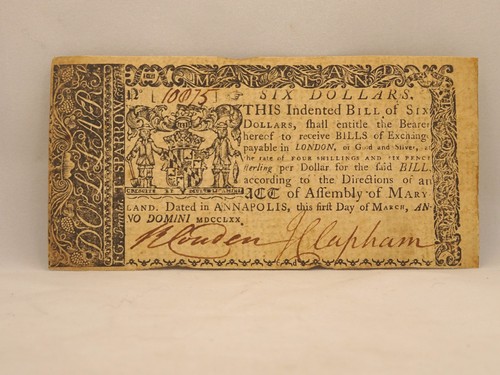 MARYLAND
No [10875] SIX DOLLARS.
THIS Indented BILL of SIX
DOLLARS, shall entitle the Bearer
hereof to receive BILLS of Exchange
payable in LONDON, or Gold and Silver, at
the rate of FOUR SHILLINGS AND SIX PENCE
sterling per Dollar for the said BILL,
according to the Directions of an
ACT of Assembly of MARY
LAND. Dated in ANNAPOLIS, this first Day of MARCH, AN-
NO DOMINI MDCCLXX.
CRESCITE ET MULTIPLICAMINI
R Couden J Clapham